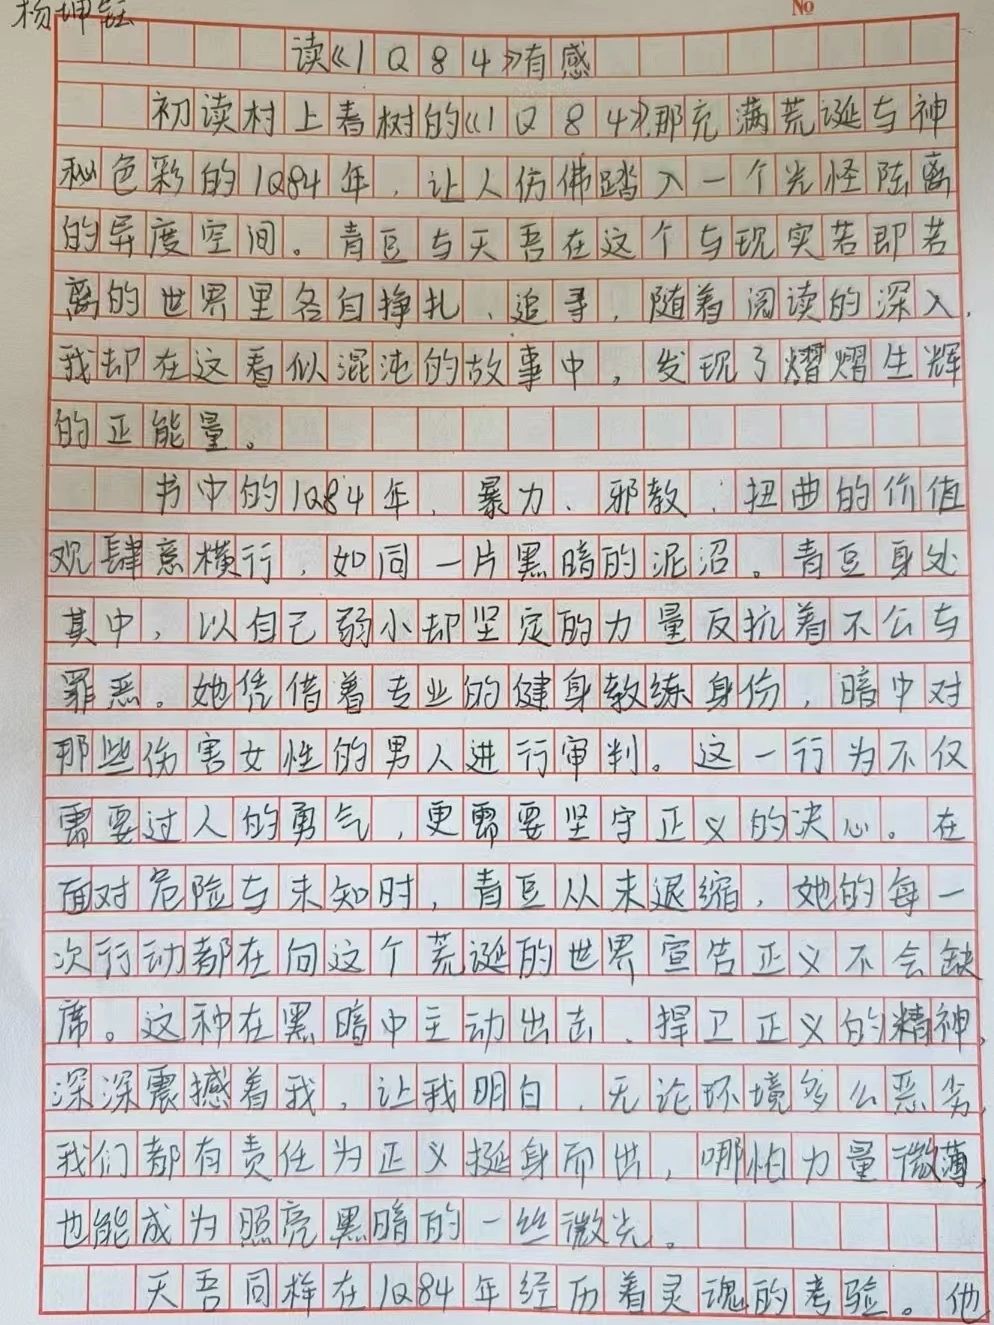 杨坤钰
No
读《1Q84》有感
初读村上春树的《1Q84》,那充满荒诞与神
秘色彩的1Q84年，让人仿佛踏入一个光怪陆离
的异度空间。青豆与天吾在这个与现实若即若
离的世界里各自挣扎、追寻，随着阅读的深入，
我却在这看似混沌的故事中，发现了熠熠生辉
的正能量。
书中的1Q84年，暴力、邪教、扭曲的价值
观肆意横行，如同一片黑暗的泥沼。青豆身处
其中，以自己弱小却坚定的力量反抗着不公与
罪恶。她凭借着专业的健身教练身份，暗中对
那些伤害女性的男人进行审判。这一行为不仅
需要过人的勇气，更需要坚守正义的决心。在
面对危险与未知时，青豆从未退缩，她的每一
次行动都在向这个荒诞的世界宣告正义不会缺
席。这种在黑暗中主动出击、捍卫正义的精神，
深深震撼着我，让我明白，无论环境多么恶劣，
我们都有责任为正义挺身而出，哪怕力量微薄，
也能成为照亮黑暗的一丝微光。
天吾同样在1Q84年经历着灵魂的考验。他